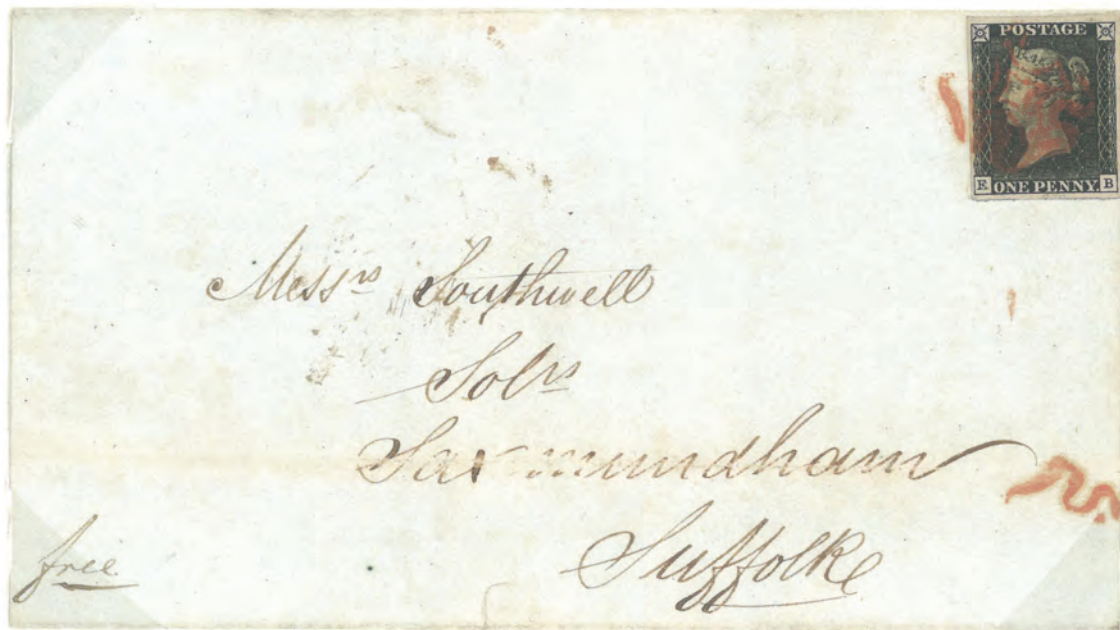 POSTAGE
E ONE PENNY B
Messrs Southwell
Solrs
Saxmundham
Suffolk
free